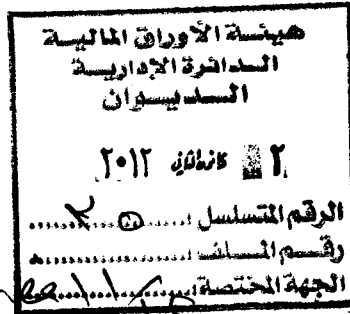 هيئة الأوراق المالية
الدائرة الإدارية
الديوان
٢ كانون الثاني ٢٠١٢
الرقم المتسلسل
رقم الملف
الجهة المختصة